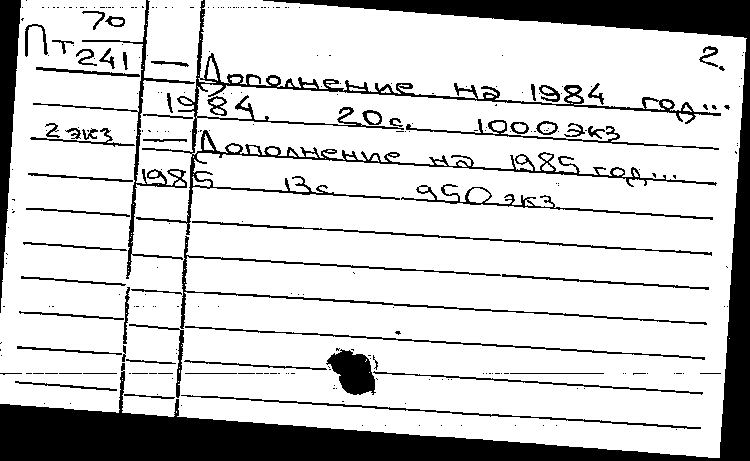 2.
Пт 70/241 — Дополнение на 1984 год...
1984. 20с. 1000экз
2экз — Дополнение на 1985 год...
1985 13с 950экз